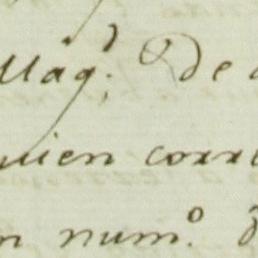 Mag.d De
uien corre
n num.o